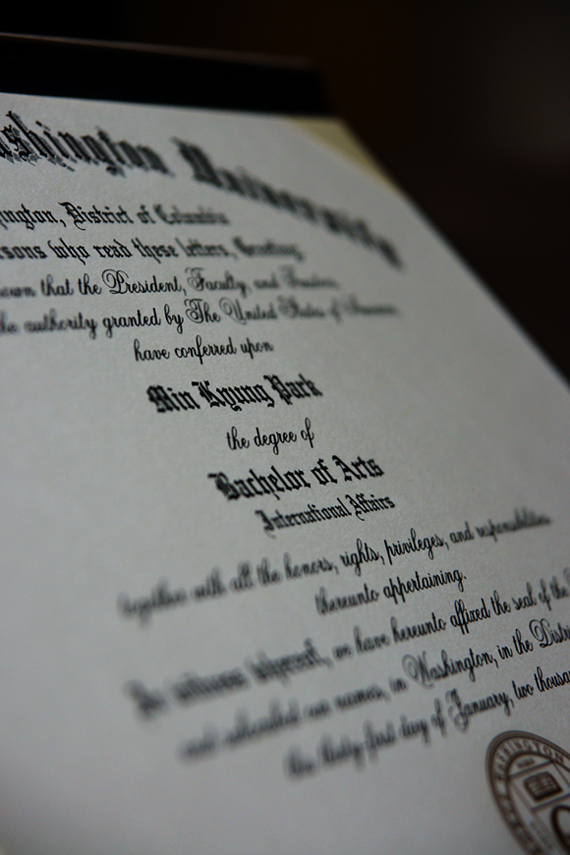 ashington University
ngton, District of Columbia
sons who read these letters, Greeting,
own that the President, Faculty, and Trustees,
he authority granted by The United States of America
have conferred upon
Min Kyung Park
the degree of
Bachelor of Arts
International Affairs
together with all the honors, rights, privileges, and responsibilities
thereunto appertaining.
In witness whereof, we have hereunto affixed the seal of the
and subscribed our names, in Washington, in the Distri
the thirty-first day of January, two thousa
WASHINGTON